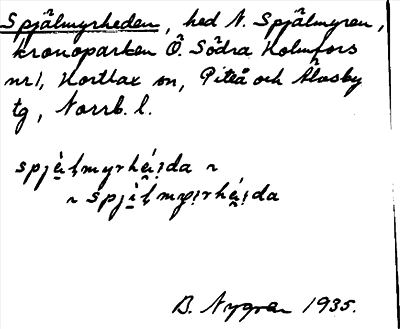 Spjälmyrheden, hed N. Spjälmyren,
kronoparken Ö. Södra Holmfors
nr 1, Hortlax sn, Piteå och Älvsby
tg, Norrb. l.
spjè̤ḷmyrhé̤i̯da ~
~ spjè̤ḷmyi̯rhé̤i̯da
B. Nygren 1935.